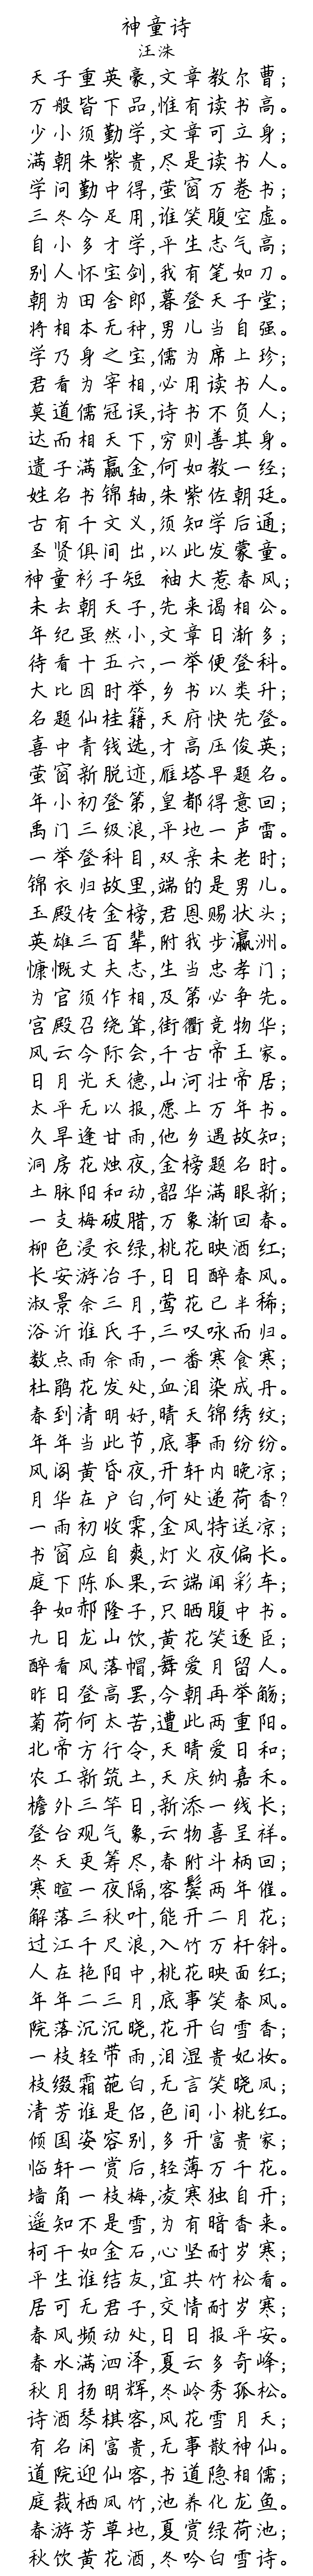 神童诗
汪洙
天子重英豪,文章教尔曹;
万般皆下品,惟有读书高。
少小须勤学,文章可立身;
满朝朱紫贵,尽是读书人。
学问勤中得,萤窗万卷书;
三冬今足用,谁笑腹空虚。
自小多才学,平生志气高;
别人怀宝剑,我有笔如刀。
朝为田舍郎,暮登天子堂;
将相本无种,男儿当自强。
学乃身之宝,儒为席上珍;
君看为宰相,必用读书人。
莫道儒冠误,诗书不负人;
达而相天下,穷则善其身。
遗子满赢金,何如教一经;
姓名书锦轴,朱紫佐朝廷。
古有千文义,须知学后通;
圣贤俱间出,以此发蒙童。
神童衫子短 袖大惹春风;
未去朝天子,先来谒相公。
年纪虽然小,文章日渐多;
待看十五六,一举便登科。
大比因时举,乡书以类升;
名题仙桂籍,天府快先登。
喜中青钱选,才高压俊英;
萤窗新脱迹,雁塔早题名。
年小初登第,皇都得意回;
禹门三级浪,平地一声雷。
一举登科目,双亲未老时;
锦衣归故里,端的是男儿。
玉殿传金榜,君恩赐状头;
英雄三百辈,附我步瀛洲。
慷慨丈夫志,生当忠孝门;
为官须作相,及第必争先。
宫殿召绕耸,街衢竞物华;
风云今际会,千古帝王家。
日月光天德,山河壮帝居;
太平无以报,愿上万年书。
久旱逢甘雨,他乡遇故知;
洞房花烛夜,金榜题名时。
土脉阳和动,韶华满眼新;
一支梅破腊,万象渐回春。
柳色浸衣绿,桃花映酒红;
长安游冶子,日日醉春风。
淑景余三月,莺花已半稀;
浴沂谁氏子,三叹咏而归。
数点雨余雨,一番寒食寒;
杜鹃花发处,血泪染成丹。
春到清明好,晴天锦绣纹;
年年当此节,底事雨纷纷。
风阁黄昏夜,开轩内晚凉;
月华在户白,何处递荷香?
一雨初收霁,金风特送凉;
书窗应自爽,灯火夜偏长。
庭下陈瓜果,云端闻彩车;
争如郝隆子,只晒腹中书。
九日龙山饮,黄花笑逐臣;
醉看风落帽,舞爱月留人。
昨日登高罢,今朝再举觞;
菊荷何太苦,遭此两重阳。
北帝方行令,天晴爱日和;
农工新筑土,天庆纳嘉禾。
檐外三竿日,新添一线长;
登台观气象,云物喜呈祥。
冬天更筹尽,春附斗柄回;
寒暄一夜隔,客鬓两年催。
解落三秋叶,能开二月花;
过江千尺浪,入竹万杆斜。
人在艳阳中,桃花映面红;
年年二三月,底事笑春风。
院落沉沉晓,花开白雪香;
一枝轻带雨,泪湿贵妃妆。
枝缀霜葩白,无言笑晓凤;
清芳谁是侣,色间小桃红。
倾国姿容别,多开富贵家;
临轩一赏后,轻薄万千花。
墙角一枝梅,凌寒独自开;
遥知不是雪,为有暗香来。
柯干如金石,心坚耐岁寒;
平生谁结友,宜共竹松看。
居可无君子,交情耐岁寒;
春风频动处,日日报平安。
春水满泗泽,夏云多奇峰;
秋月扬明辉,冬岭秀孤松。
诗酒琴棋客,风花雪月天;
有名闲富贵,无事散神仙。
道院迎仙客,书道隐相儒;
庭栽栖凤竹,池养化龙鱼。
春游芳草地,夏赏绿荷池;
秋饮黄花酒,冬吟白雪诗。